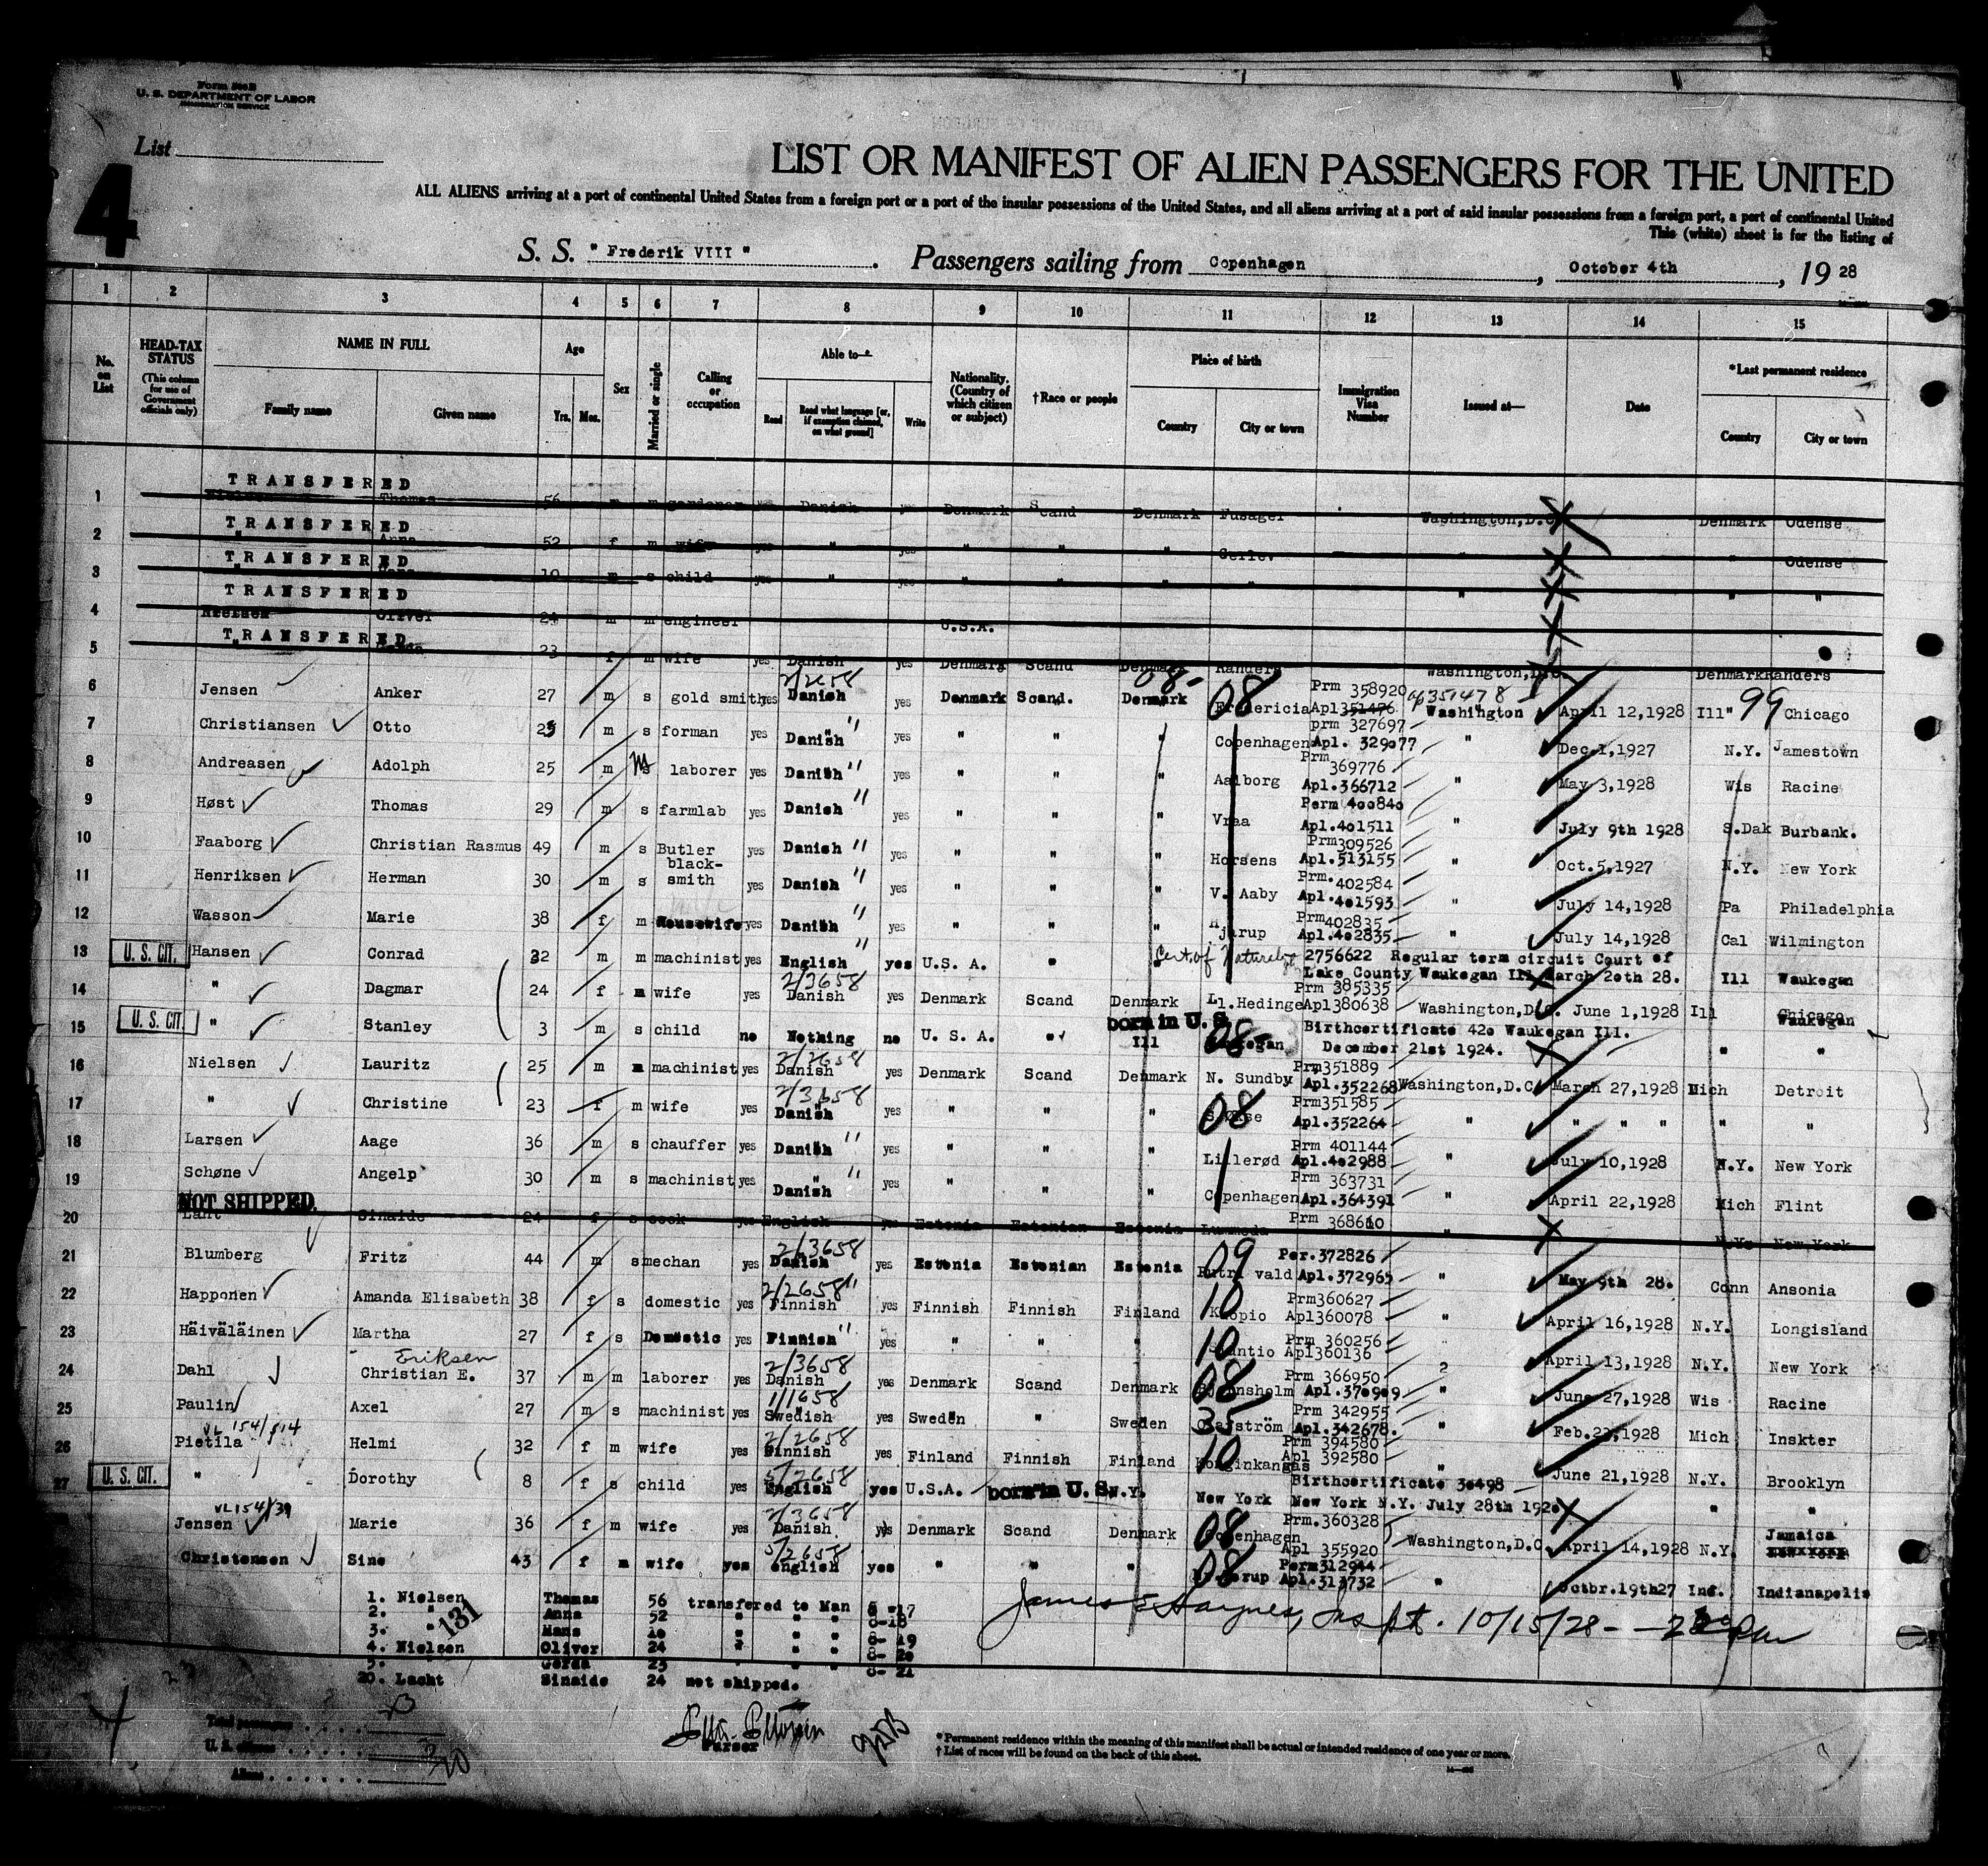 Form 500B
U. S. DEPARTMENT OF LABOR
IMMIGRATION SERVICE
List
4
LIST OR MANIFEST OF ALIEN PASSENGERS FOR THE UNITED
ALL ALIENS arriving at a port of continental United States from a foreign port or a port of the insular possessions of the United States, and all aliens arriving at a port of said insular possessions from a foreign port, a port of continental United
This (white) sheet is for the listing of
S. S. "Frederik VIII". Passengers sailing from Copenhagen, October 4th, 1928
1 2 3 4 5 6 7 8 9 10 11 12 13 14 15
No. on List
HEAD-TAX STATUS (This column for use of Government officials only)
NAME IN FULL Family name Given name
Age Yrs. Mos.
Sex
Married or single
Calling or occupation
Able to— Read Read what language [or, if exemption claimed, on what ground] Write
Nationality. (Country of which citizen or subject)
†Race or people
Place of birth Country City or town
Immigration Visa Number
Issued at—
Date
*Last permanent residence Country City or town
TRANSFERED
1 Thomas 56 m m gardener Danish Denmark Scand Denmark Fusager Washington,D.C Denmark Odense
TRANSFERED
2 " Anna 52 f m wife yes " yes " " " " " Odense
TRANSFERED
3 " 10 m s child yes " yes " " " " " " "
TRANSFERED
4 Nielsen Oliver 24 m m engineer U.S.A.
TRANSFERED
5 " 23 f m wife yes Danish yes Denmark Scand Denmark Randers Washington,D.C. Denmark Randers
6 Jensen Anker 27 m s gold smith yes 2/2658 Danish yes Denmark Scand. Denmark 08 Fredericia Prm 358920 Apl 351476 Washington April 12,1928 Ill" 99 Chicago
7 Christiansen Otto 25 m s forman yes Danish " yes " " " Copenhagen prm 327697 Apl. 329077 " Dec.1,1927 N.Y. Jamestown
8 Andreasen Adolph 25 m s laborer yes Danish " yes " " " Aalborg Prm 369776 Apl.366712 " May 3,1928 Wis Racine
9 Høst Thomas 29 m s farmlab yes Danish " yes " " " Vraa Perm 400840 Apl.401511 " July 9th 1928 S.Dak Burbank.
10 Faaborg Christian Rasmus 49 m s Butler yes Danish " yes " " " Horsens Prm309526 Apl.513155 " Oct.5,1927 N.Y. New York
11 Henriksen Herman 30 m s black-smith yes Danish " yes " " " V. Aaby Prm.402584 Apl.401593 " July 14,1928 Pa Philadelphia
12 Wasson Marie 38 f m Housewife yes Danish " yes " " " Hjurup Prm402835 Apl.402835 " July 14,1928 Cal Wilmington
13 U. S. CIT. Hansen Conrad 32 m m machinist yes English " yes U.S.A. " Cert. of Natural 2756622 Regular term circuit Court of Lake County Waukegan Ill March 20th 28. Ill Waukegan
14 " Dagmar 24 f m wife yes 2/3658 Danish yes Denmark Scand Denmark Ll.Hedinge Prm 385335 Apl380638 Washington,D.C. June 1,1928 Ill Chicago Waukegan
15 U. S. CIT. " Stanley 3 m s child no Nothing no U. S. A. " born in U. S. Ill Birthcertificate 420 Waukegan Ill. December 21st 1924. " "
16 Nielsen Lauritz 25 m m machinist yes 2/2658 Danish yes Denmark Scand Denmark N. Sundby Prm351889 Apl.352268 Washington,D.C. March 27,1928 Mich Detroit
17 " Christine 23 f m wife yes 2/3658 Danish yes " " " 08 Prm351585 Apl.352264 " " " " " "
18 Larsen Aage 36 m s chauffer yes Danish " yes " " " Lillerød Prm 401144 Apl.402988 " July 10,1928 N.Y. New York
19 Schøne Angelp 30 m s machinist yes Danish " yes " " " Copenhagen Prm 363731 Apl.364391 " April 22,1928 Mich Flint
NOT SHIPPED.
20 Laht Sinaide 24 f s cook yes English yes Estonia Estonian Estonia Prm 368610 " N.Y. New York
21 Blumberg Fritz 44 m s mechan yes 2/3658 Danish yes Estonia Estonian Estonia 09 Per.372826 Apl.372965 " May 9th 28. Conn Ansonia
22 Happonen Amanda Elisabeth 38 f s domestic yes 2/2658 Finnish " yes Finnish Finnish Finland 10 Kuopio Prm360627 Apl360078 " April 16,1928 N.Y. Longisland
23 Häiväläinen Martha 27 f s Domestic yes Finnish " yes " " " 10 Prm 360256 Apl360136 " April 13,1928 N.Y. New York
24 Dahl Eriksen Christian E. 37 m m laborer yes 2/3658 Danish yes Denmark Scand Denmark 08 Prm 366950 Apl.370909 " June 27,1928 Wis Racine
25 Paulin Axel 27 m s machinist yes 1/1658 Swedish yes Sweden " Sweden 35 Olafström Prm 342955 Apl.342678. " Feb.23,1928 Mich Inskter
VL 154/814
26 Pietila Helmi 32 f m wife yes 2/2658 Finnish yes Finland Finnish Finland 10 Konginkangas Prm 394580 Apl 392580 " June 21,1928 N.Y. Brooklyn
27 U. S. CIT. " Dorothy 8 f s child yes 5/2658 English yes U.S.A. born in U. S. N.Y. New York Birthcertificate 30498 New York N.Y. July 28th 1920 " "
VL 154/39
Jensen Marie 36 f m wife yes 2/3658 Danish yes Denmark Scand Denmark 08 Copenhagen Prm.360328 Apl 355920 Washington,D.C. April 14,1928 N.Y. Jamaica
Christensen Sine 43 f m wife yes 5/2658 English yes " " " 08 Perm312944 Apl.313732 " Octbr.19th27 Ind. Indianapolis
1. Nielsen Thomas 56 transfered to Man 8-17
2. " Anna 52 " " " 8-18
3. " Hans 10 " " " 8-19
4. Nielsen Oliver 24 " " " 8-20
5. " Gerda 23 " " " 8-21
20. Lacht Sinaide 24 not shipped.
131
James E Haynes, Inspt. 10/15/28
Purser
Total passengers
U. S. citizens 3
Aliens 20
*Permanent residence within the meaning of this manifest shall be actual or intended residence of one year or more.
†List of races will be found on the back of this sheet.